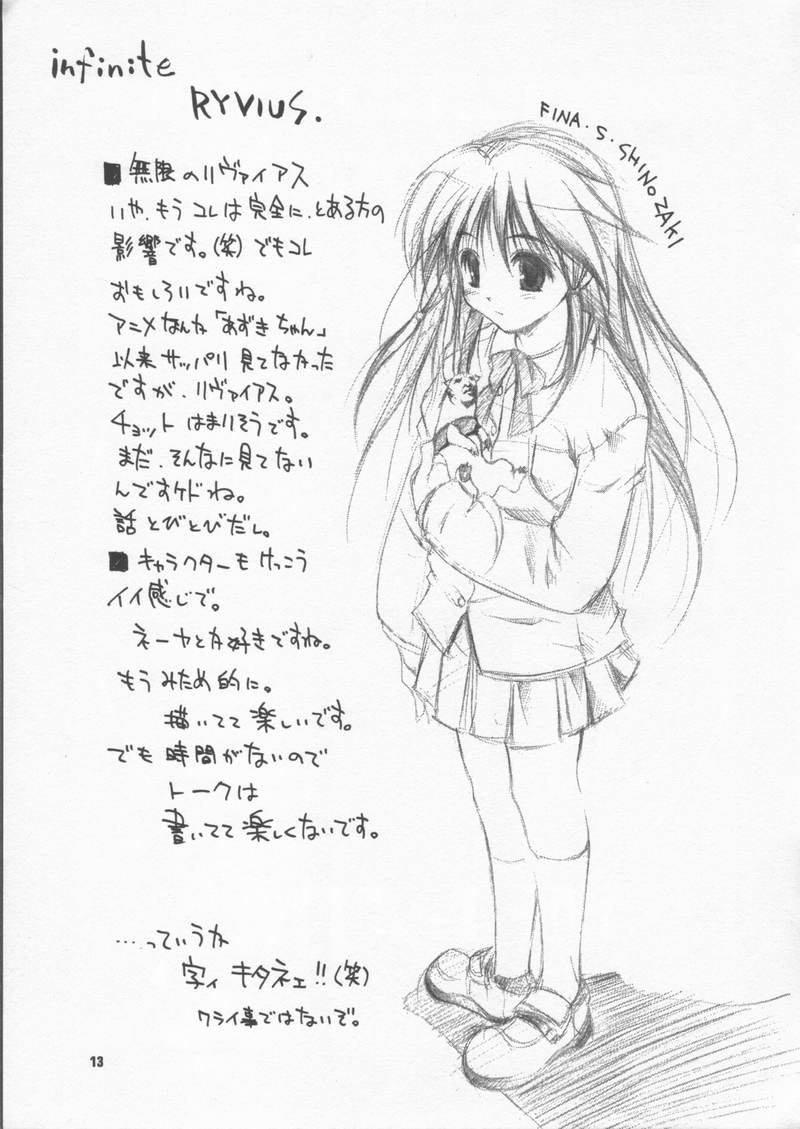 infinite
RYVIUS.
FINA.S.SHINOZAKI
■無限のリヴァイアス
いや、もうコレは完全に、とある方の
影響です。(笑)でもコレ
おもしろいですね。
アニメなんか「あずきちゃん」
以来サッパリ見てなかった
ですが、リヴァイアス。
チョットはまりそうです。
まだ、そんなに見てない
んですケドね。
話とびとびだし。
■キャラクターもけっこう
イイ感じで。
ネーヤとか好きですね。
もうみため的に。
描いてて楽しいです。
でも時間がないので
トークは
書いてて楽しくないです。
....っていうか
字ィキタネェ!!(笑)
ワライ事ではないぞ。
13